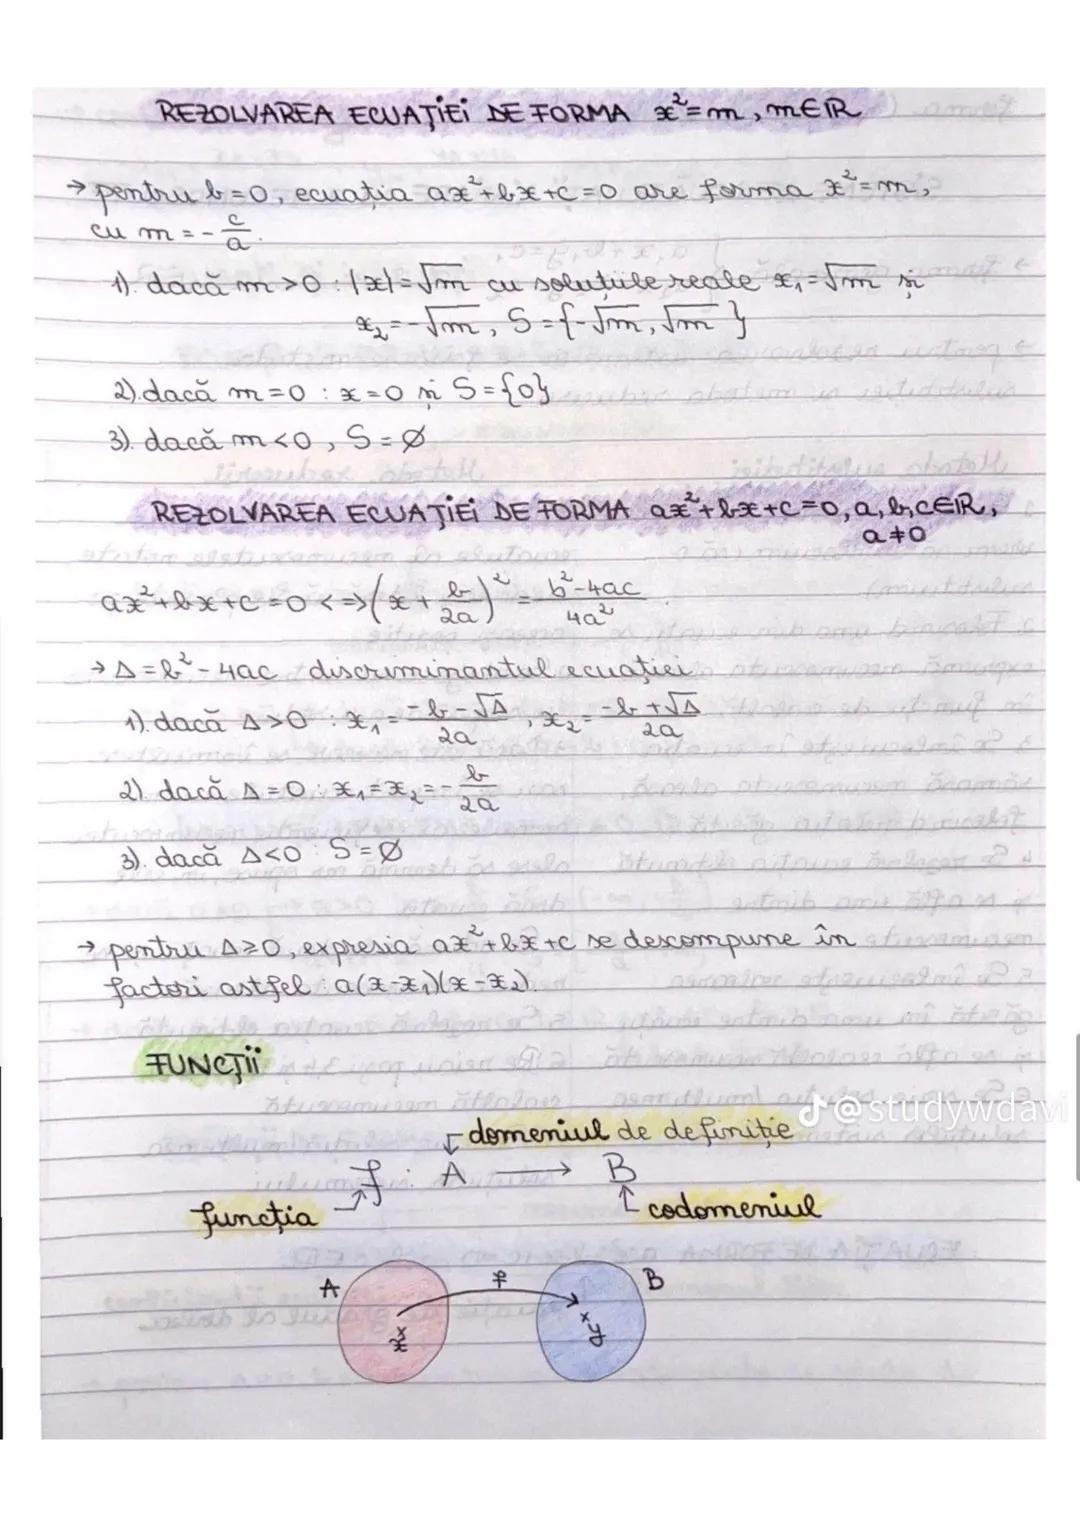 REZOLVAREA ECUAȚIEI DE FORMA x²=m, m∈ℝ
→ pentru b=0, ecuația ax²+bx+c=0 are forma x²=m,
cu m = -c/a.
1). dacă m>0 : |x|=√m cu soluțiile reale x₁=√m și
x₂=-√m, S={-√m, √m}
2). dacă m=0 : x=0 și S={0}
3). dacă m<0, S=∅
REZOLVAREA ECUAȚIEI DE FORMA ax²+bx+c=0, a,b,c∈ℝ,
a≠0
ax²+bx+c=0 <=> (x + b/2a)² = b²-4ac/4a²
→ Δ=b²-4ac discriminantul ecuației
1). dacă Δ>0 : x₁ = -b-√Δ/2a, x₂ = -b+√Δ/2a
2). dacă Δ=0 : x₁=x₂=-b/2a
3). dacă Δ<0 : S=∅
→ pentru Δ≥0, expresia ax²+bx+c se descompune în
factori astfel : a(x-x₁)(x-x₂)
FUNCȚII
@studywdavi
domeniul de definiție
f : A → B
funcția
codomeniul
A f B
x y